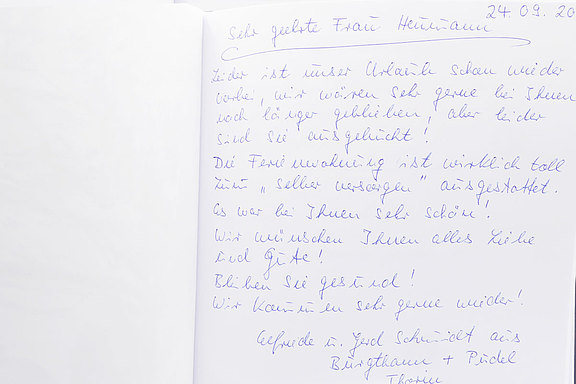 24.09.20
Sehr geehrte Frau Heumann
Leider ist unser Urlaub schon wieder
vorbei, wir wären sehr gerne bei Ihnen
noch länger geblieben, aber leider
sind Sie ausgebucht!
Die Ferienwohnung ist wirklich toll
zum „selber versorgen" ausgestattet.
Es war bei Ihnen sehr schön!
Wir wünschen Ihnen alles Liebe
und Gute!
Bleiben Sie gesund!
Wir kommen sehr gerne wieder!
Elfriede u. Gerd Schmidt aus
Burgthann + Pudel